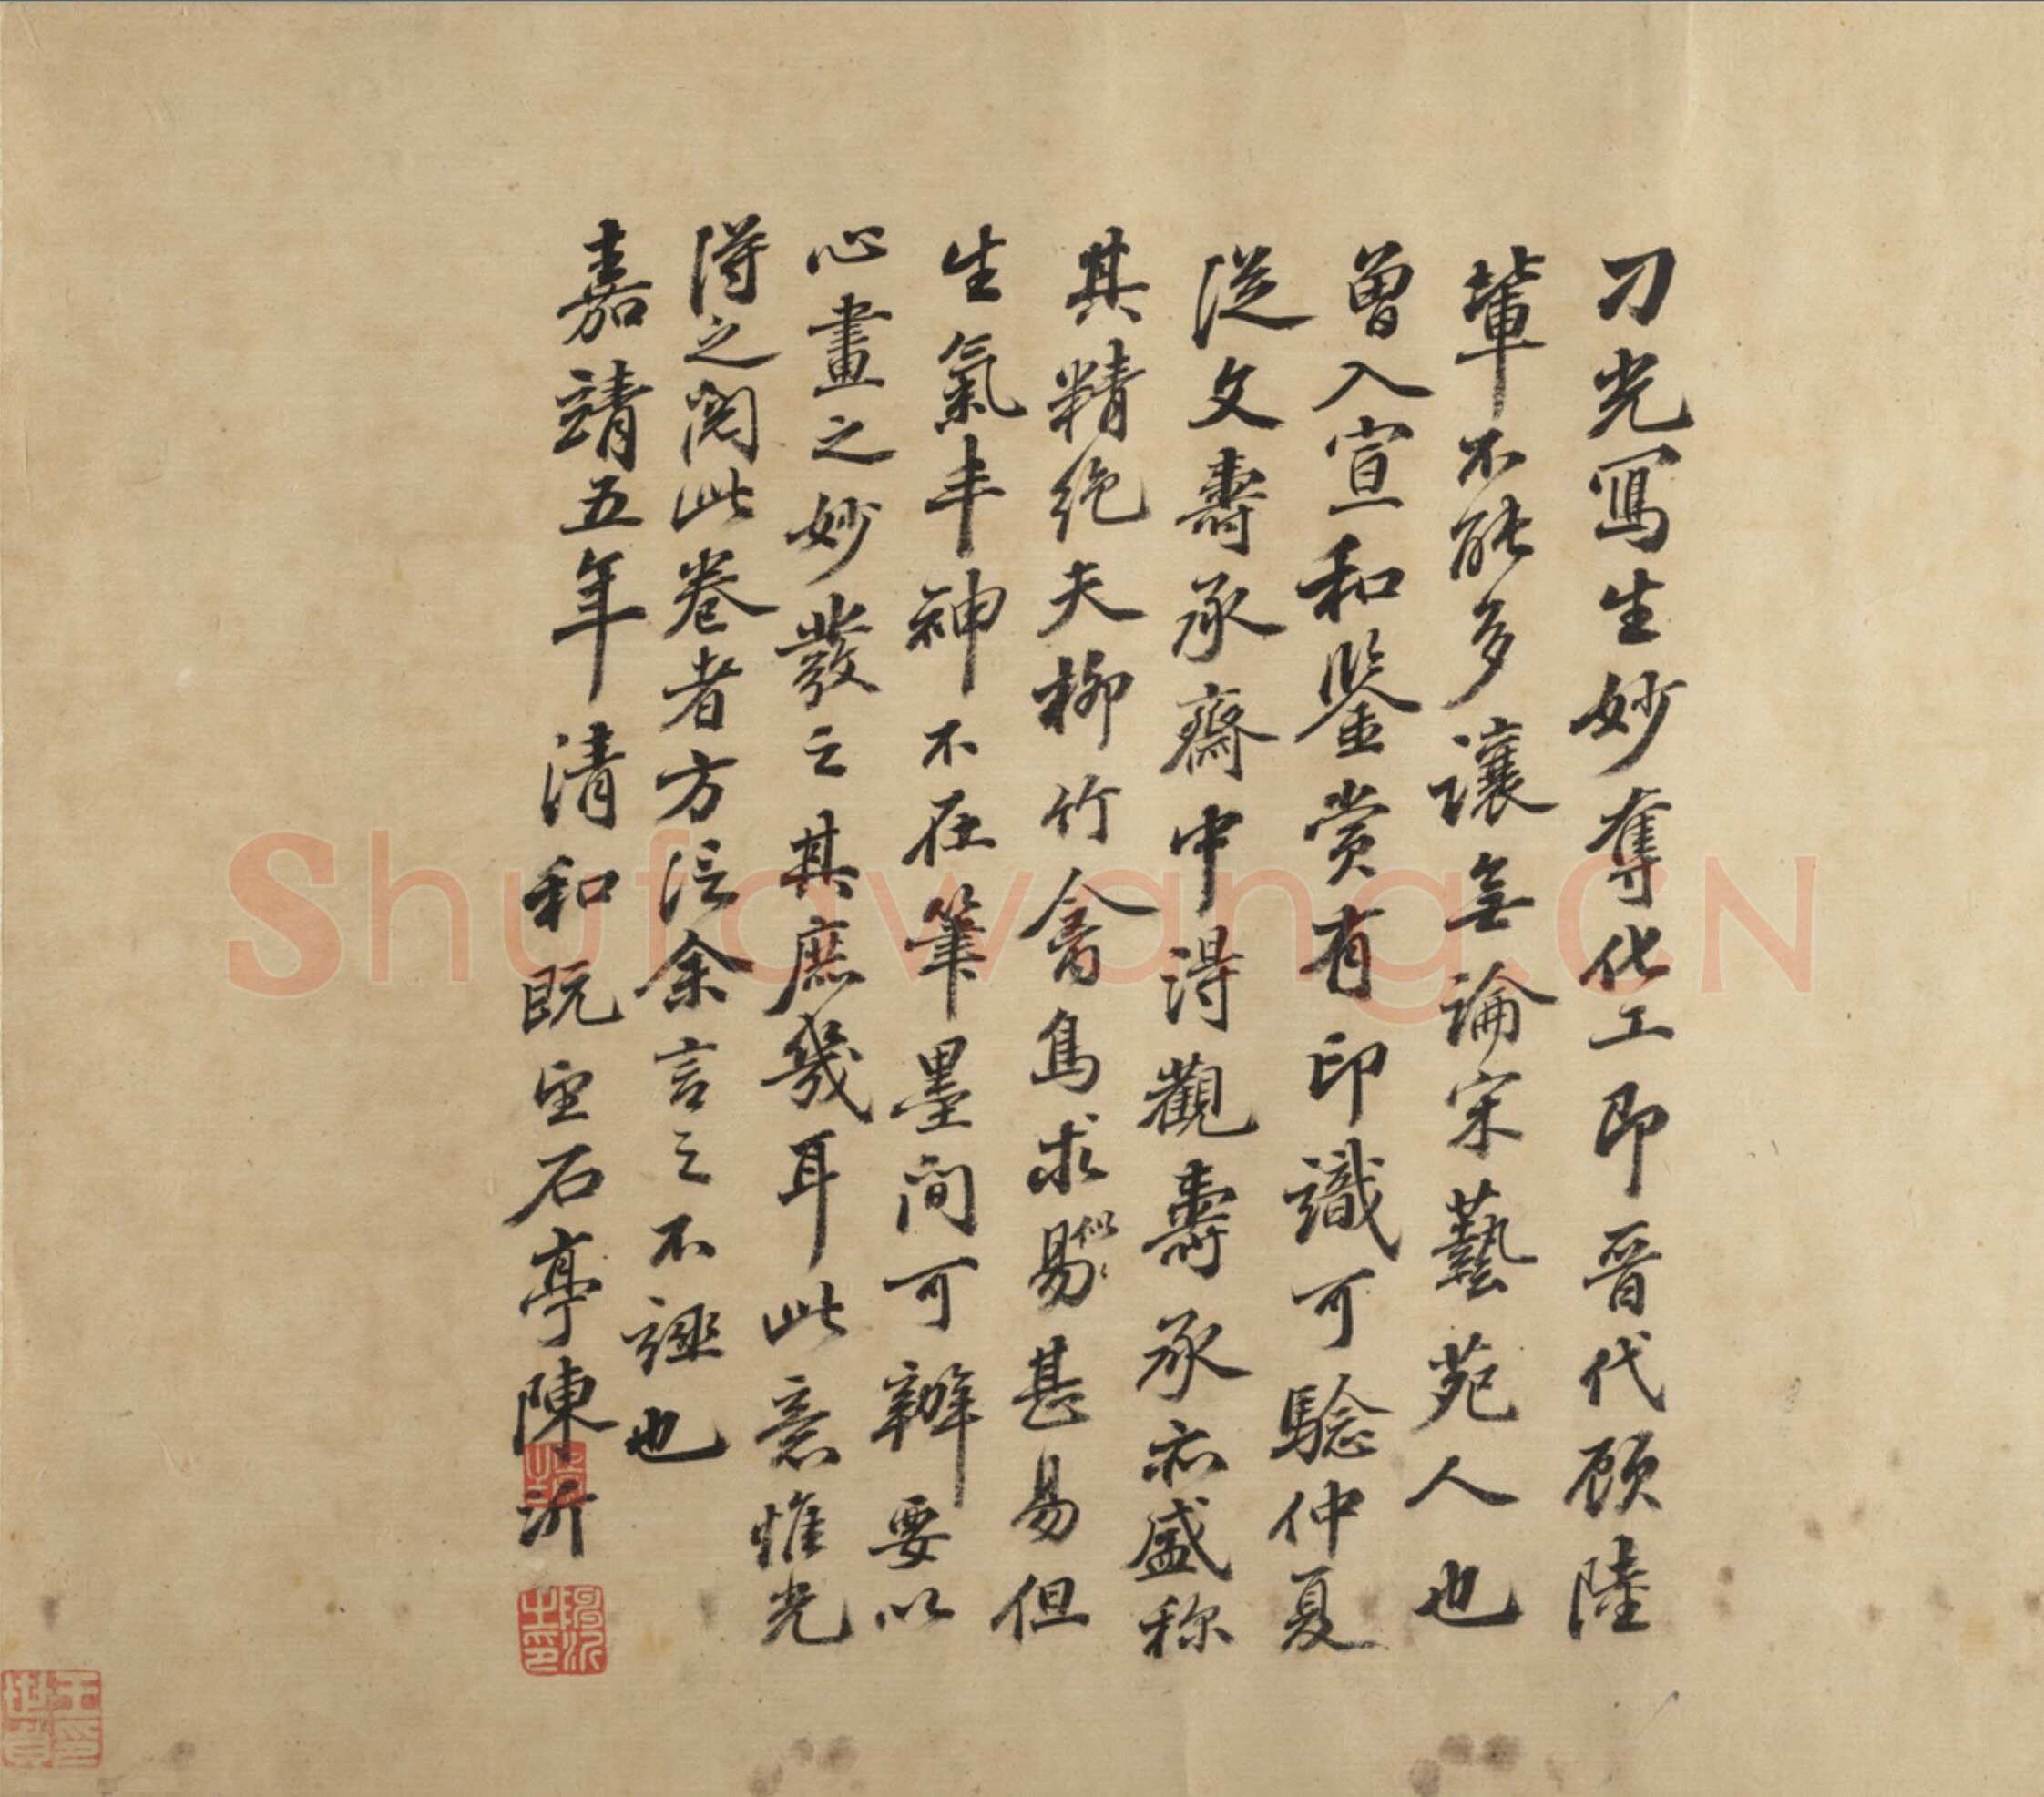 刁光寫生妙奪化工即晉代顧陸
輩不能多讓無論宋藝苑人也
曾入宣和鑒賞有印識可驗仲夏
從文壽承齋中得觀壽承亦盛稱
其精絶夫柳竹禽鳥求易似甚易但
生氣丰神不在筆墨間可辦要以
心畫之妙發之其庶幾耳此意惟光
得之閱此卷者方信余言之不誣也
嘉靖五年清和既望石亭陳沂
陳沂之印
Shufawang.CN